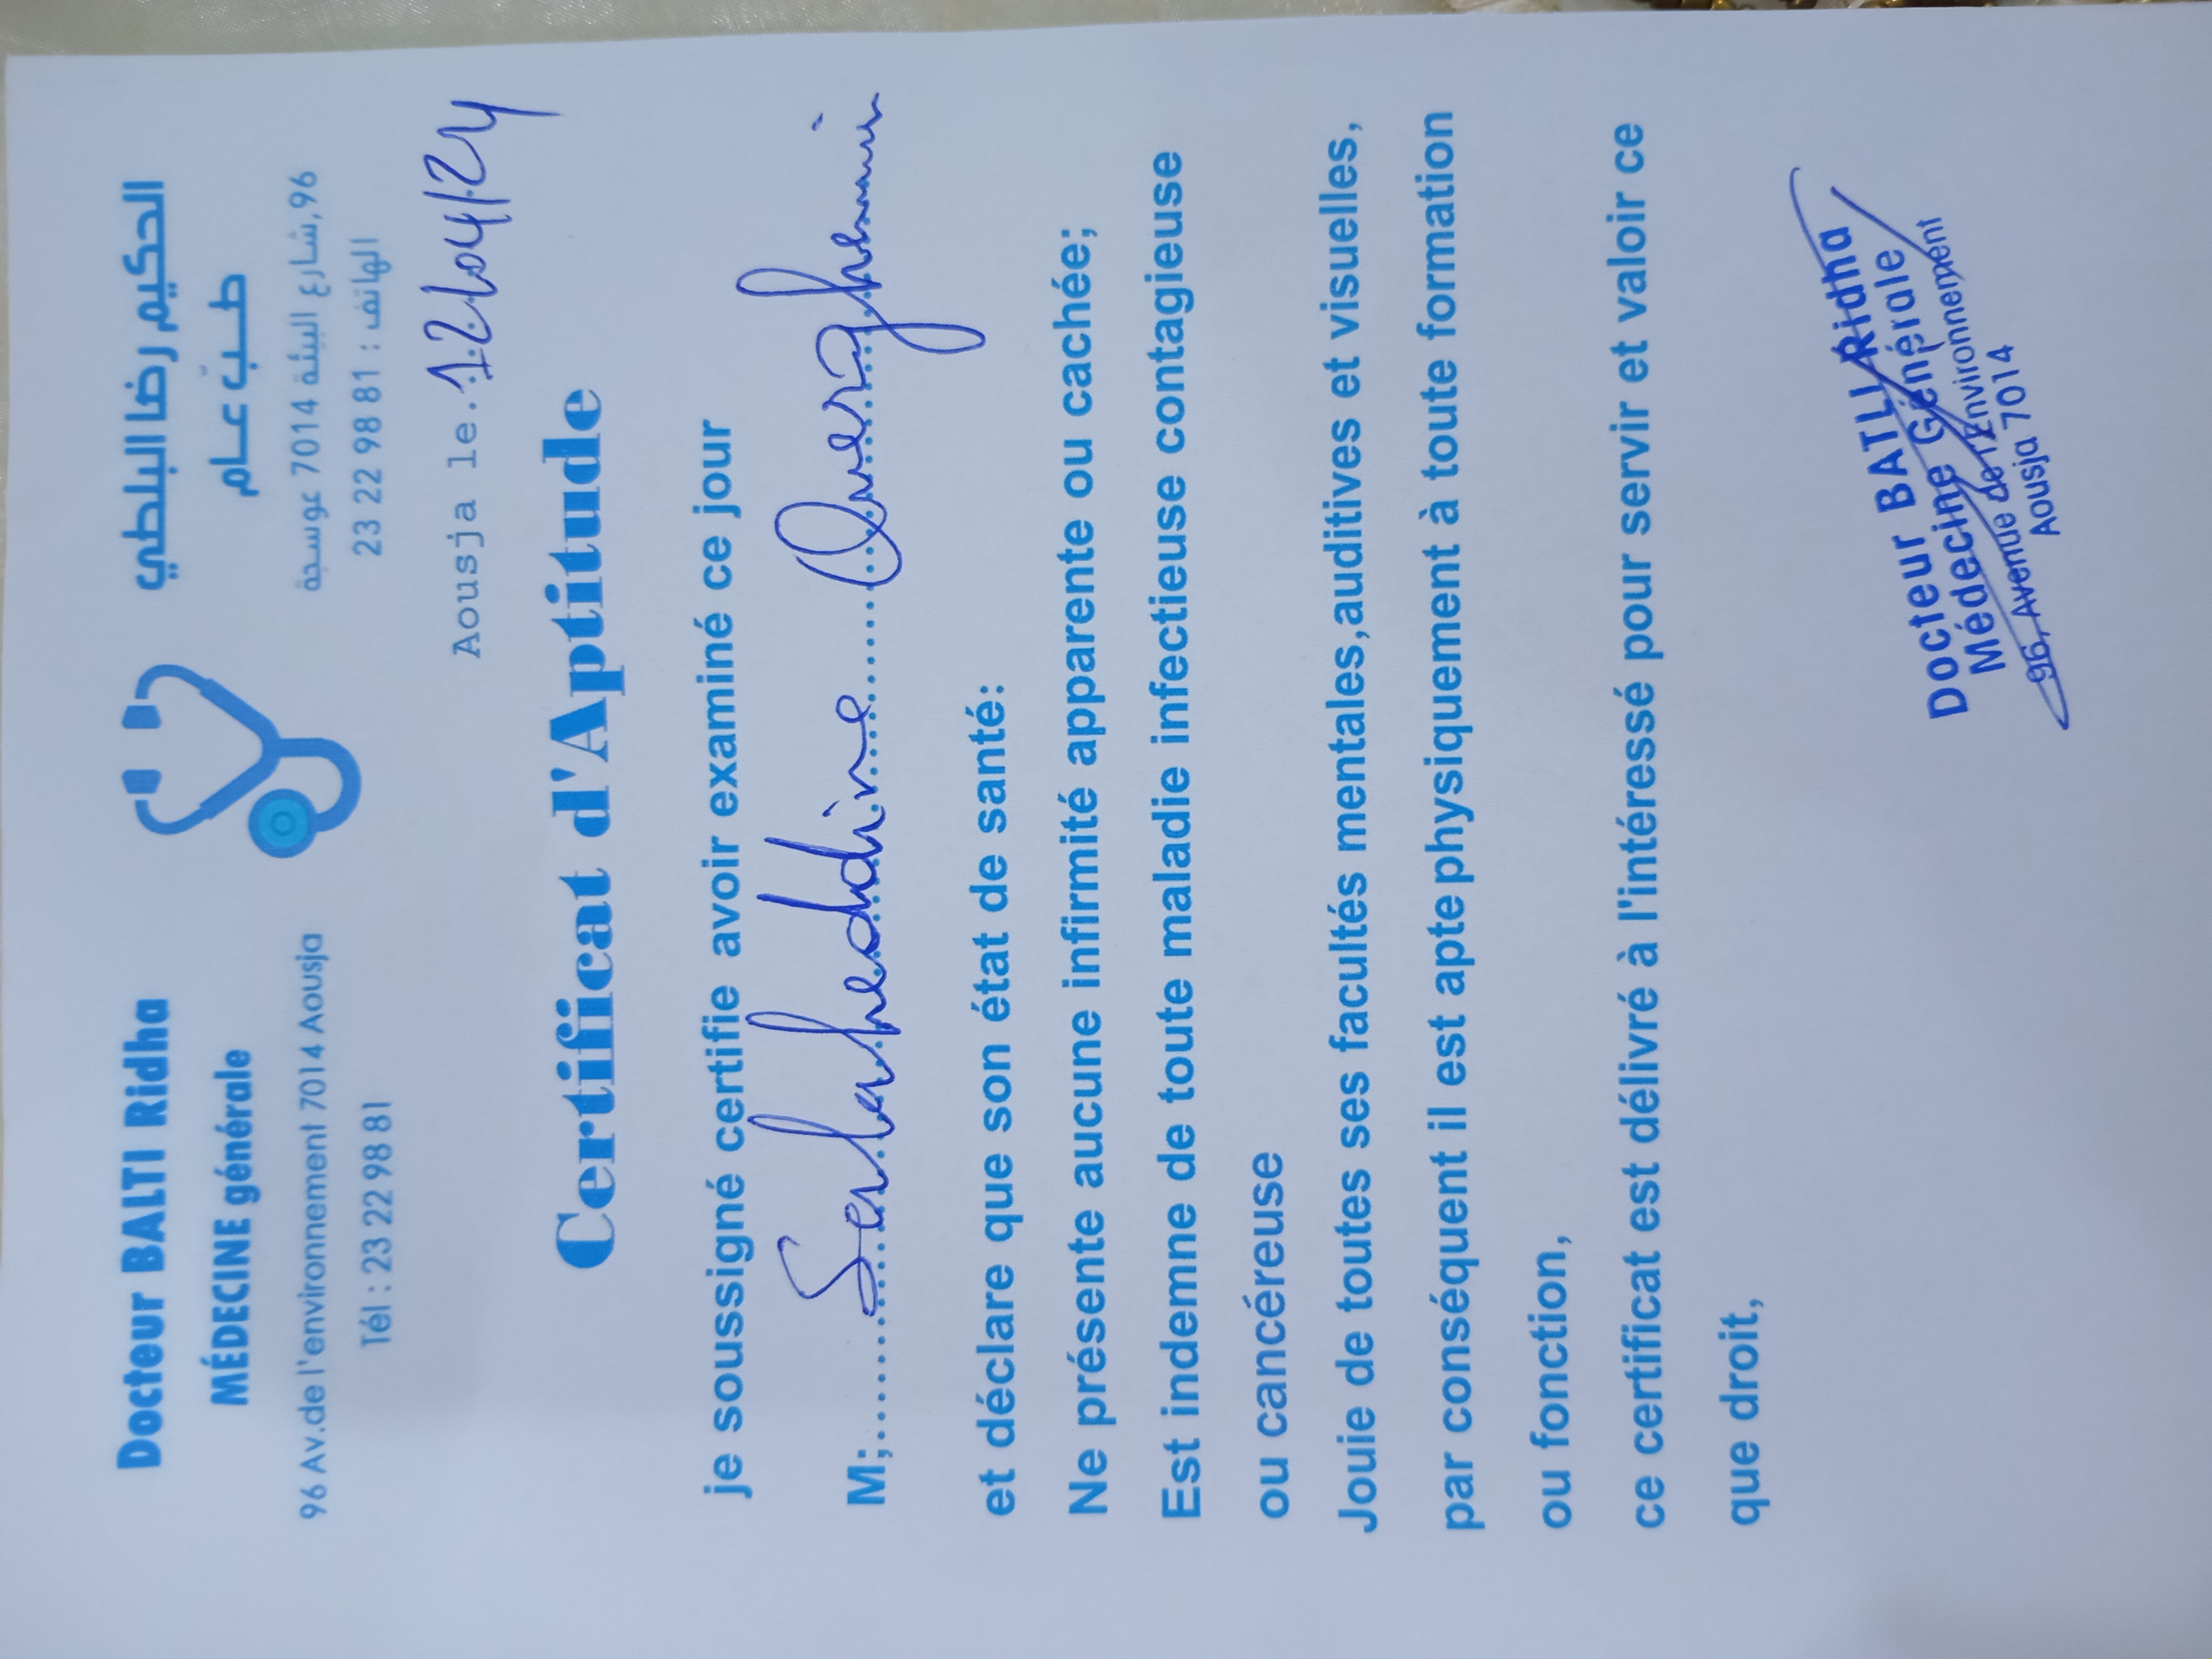 Docteur BALTI Ridha
MÉDECINE générale
96 Av.de l'environnement 7014 Aousja
Tél : 23 22 98 81
الحكيم رضا البلطي
طبّ عــام
96,شارع البيئة 7014 عوسجة
الهاتف : 23 22 98 81
Aousja le.12/04/24
Certificat d'Aptitude
je soussigné certifie avoir examiné ce jour
M;........Salaheddine......Oueryhemi
et déclare que son état de santé:
Ne présente aucune infirmité apparente ou cachée;
Est indemne de toute maladie infectieuse contagieuse
ou cancéreuse
Jouie de toutes ses facultés mentales,auditives et visuelles,
par conséquent il est apte physiquement à toute formation
ou fonction,
ce certificat est délivré à l'intéressé pour servir et valoir ce
que droit,
Docteur BATLI Ridha
Médecine Générale
96, Avenue de l'Environnement
Aousja 7014